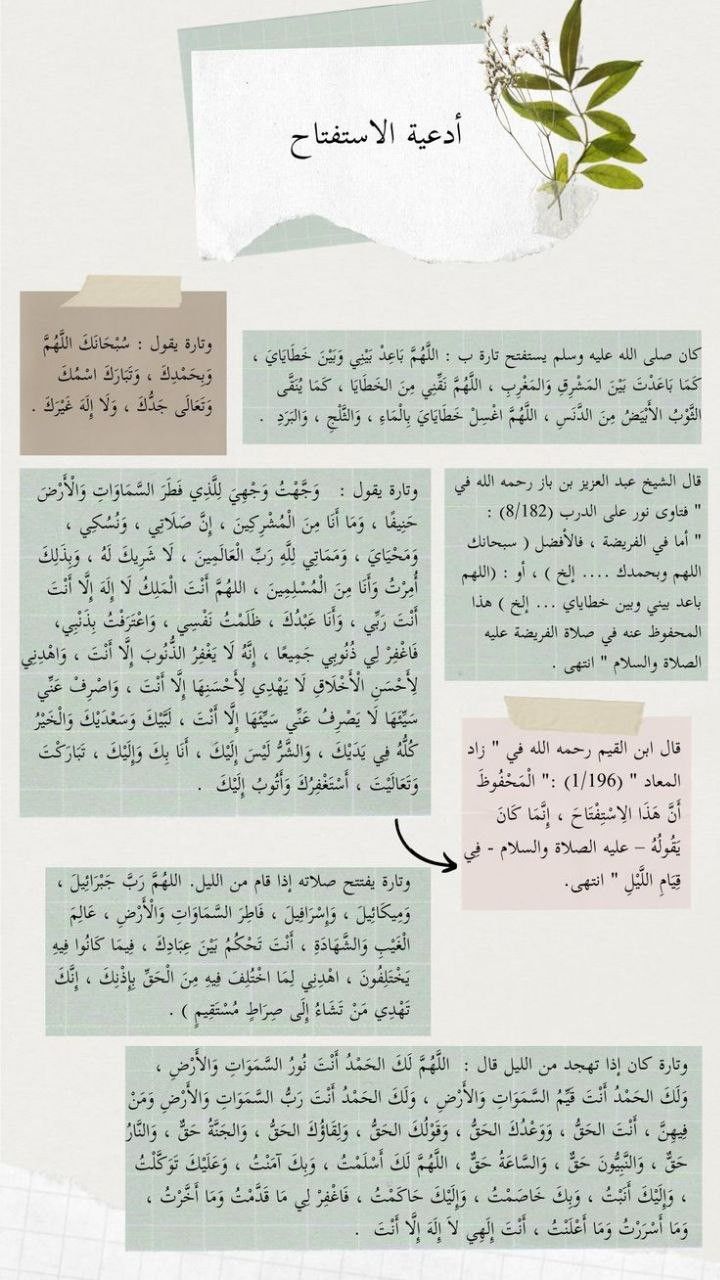 أدعية الاستفتاح
كان صلى الله عليه وسلم يستفتح تارة ب : اللَّهُمَّ بَاعِدْ بَيْنِي وَبَيْنَ خَطَايَايَ ،
كَمَا بَاعَدْتَ بَيْنَ المَشْرِقِ وَالمَغْرِبِ ، اللَّهُمَّ نَقِّنِي مِنَ الخَطَايَا ، كَمَا يُنَقَّى
الثَّوْبُ الأَبْيَضُ مِنَ الدَّنَسِ ، اللَّهُمَّ اغْسِلْ خَطَايَايَ بِالْمَاءِ ، وَالثَّلْجِ ، وَالبَرَدِ .
وتارة يقول : سُبْحَانَكَ اللَّهُمَّ
وَبِحَمْدِكَ ، وَتَبَارَكَ اسْمُكَ
وَتَعَالَى جَدُّكَ ، وَلَا إِلَهَ غَيْرَكَ .
قال الشيخ عبد العزيز بن باز رحمه الله في
" فتاوى نور على الدرب (8/182) :
" أما في الفريضة ، فالأفضل ( سبحانك
اللهم وبحمدك .... إلخ ) ، أو : (اللهم
باعد بيني وبين خطاياي ... إلخ ) هذا
المحفوظ عنه في صلاة الفريضة عليه
الصلاة والسلام " انتهى .
وتارة يقول : وَجَّهْتُ وَجْهِيَ لِلَّذِي فَطَرَ السَّمَاوَاتِ وَالْأَرْضَ
حَنِيفًا ، وَمَا أَنَا مِنَ الْمُشْرِكِينَ ، إِنَّ صَلَاتِي ، وَنُسُكِي ،
وَمَحْيَايَ ، وَمَمَاتِي لِلَّهِ رَبِّ الْعَالَمِينَ ، لَا شَرِيكَ لَهُ ، وَبِذَلِكَ
أُمِرْتُ وَأَنَا مِنَ الْمُسْلِمِينَ ، اللهُمَّ أَنْتَ الْمَلِكُ لَا إِلَهَ إِلَّا أَنْتَ
أَنْتَ رَبِّي ، وَأَنَا عَبْدُكَ ، ظَلَمْتُ نَفْسِي ، وَاعْتَرَفْتُ بِذَنْبِي،
فَاغْفِرْ لِي ذُنُوبِي جَمِيعًا ، إِنَّهُ لَا يَغْفِرُ الذُّنُوبَ إِلَّا أَنْتَ ، وَاهْدِنِي
لِأَحْسَنِ الْأَخْلَاقِ لَا يَهْدِي لِأَحْسَنِهَا إِلَّا أَنْتَ ، وَاصْرِفْ عَنِّي
سَيِّئَهَا لَا يَصْرِفُ عَنِّي سَيِّئَهَا إِلَّا أَنْتَ ، لَبَّيْكَ وَسَعْدَيْكَ وَالْخَيْرُ
كُلُّهُ فِي يَدَيْكَ ، وَالشَّرُّ لَيْسَ إِلَيْكَ ، أَنَا بِكَ وَإِلَيْكَ ، تَبَارَكْتَ
وَتَعَالَيْتَ ، أَسْتَغْفِرُكَ وَأَتُوبُ إِلَيْكَ .
قال ابن القيم رحمه الله في " زاد
المعاد " (1/196) :" الْمَحْفُوظَ
أَنَّ هَذَا الِاسْتِفْتَاحَ ، إِنَّمَا كَانَ
يَقُولُهُ – عليه الصلاة والسلام - فِي
قِيَامِ اللَّيْلِ " انتهى.
وتارة يفتتح صلاته إذا قام من الليل. اللهُمَّ رَبَّ جَبْرَائِيلَ ،
وَمِيكَائِيلَ ، وَإِسْرَافِيلَ ، فَاطِرَ السَّمَاوَاتِ وَالْأَرْضِ ، عَالِمَ
الْغَيْبِ وَالشَّهَادَةِ ، أَنْتَ تَحْكُمُ بَيْنَ عِبَادِكَ ، فِيمَا كَانُوا فِيهِ
يَخْتَلِفُونَ ، اهْدِنِي لِمَا اخْتُلِفَ فِيهِ مِنَ الْحَقِّ بِإِذْنِكَ ، إِنَّكَ
تَهْدِي مَنْ تَشَاءُ إِلَى صِرَاطٍ مُسْتَقِيمٍ ) .
وتارة كان إذا تهجد من الليل قال : اللَّهُمَّ لَكَ الحَمْدُ أَنْتَ نُورُ السَّمَوَاتِ وَالأَرْضِ ،
وَلَكَ الحَمْدُ أَنْتَ قَيِّمُ السَّمَوَاتِ وَالأَرْضِ ، وَلَكَ الحَمْدُ أَنْتَ رَبُّ السَّمَوَاتِ وَالأَرْضِ وَمَنْ
فِيهِنَّ ، أَنْتَ الحَقُّ ، وَوَعْدُكَ الحَقُّ ، وَقَوْلُكَ الحَقُّ ، وَلِقَاؤُكَ الحَقُّ ، وَالجَنَّةُ حَقٌّ ، وَالنَّارُ
حَقٌّ ، وَالنَّبِيُّونَ حَقٌّ ، وَالسَّاعَةُ حَقٌّ ، اللَّهُمَّ لَكَ أَسْلَمْتُ ، وَبِكَ آمَنْتُ ، وَعَلَيْكَ تَوَكَّلْتُ
، وَإِلَيْكَ أَنَبْتُ ، وَبِكَ خَاصَمْتُ ، وَإِلَيْكَ حَاكَمْتُ ، فَاغْفِرْ لِي مَا قَدَّمْتُ وَمَا أَخَّرْتُ ،
وَمَا أَسْرَرْتُ وَمَا أَعْلَنْتُ ، أَنْتَ إِلَهِي لاَ إِلَهَ إِلَّا أَنْتَ .